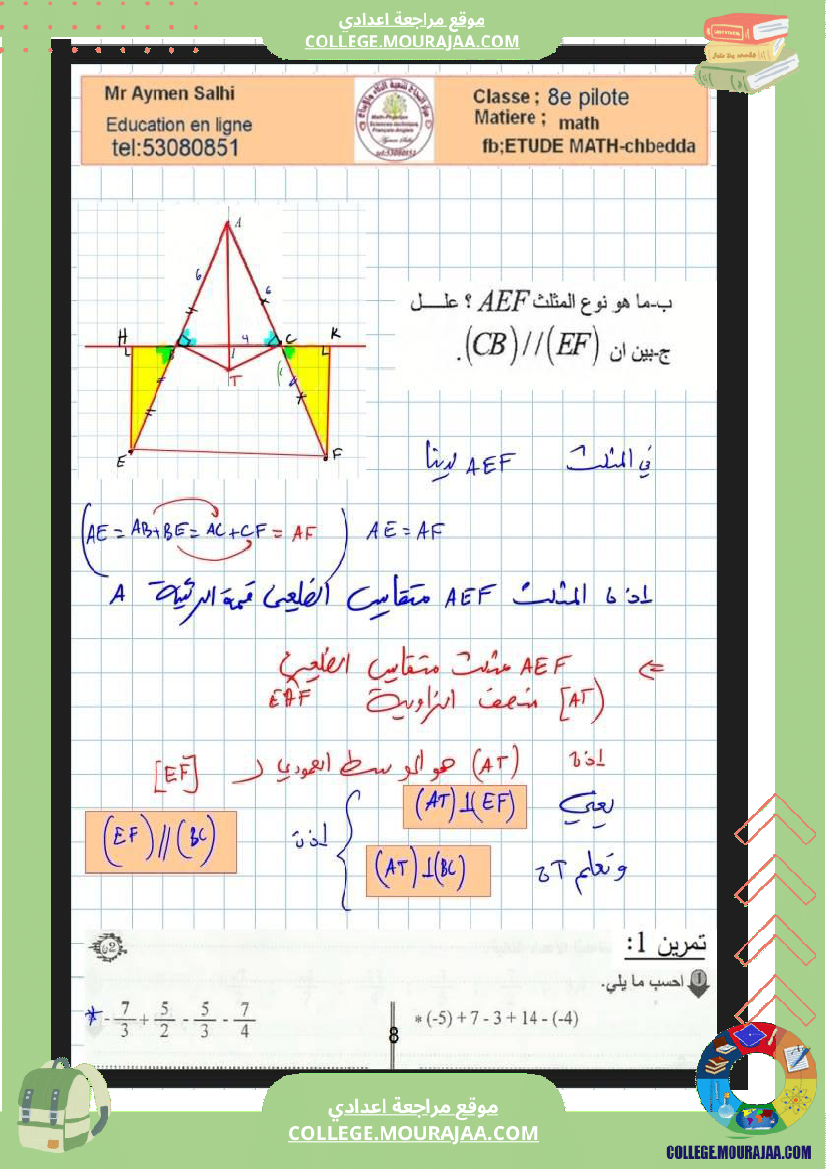 موقع مراجعة اعدادي
COLLEGE.MOURAJAA.COM
Mr Aymen Salhi
Education en ligne
tel:53080851
Classe ; 8e pilote
Matiere ; math
fb;ETUDE MATH-chbedda
A
6
6
H
4
C
K
I
T
E
F
ب-ما هو نوع المثلث AEF ؟ علـــل
ج-بين ان (CB)//(EF).
في المثلث AEF لدينا
(AE = AB+BE = AC+CF = AF) AE = AF
اذن المثلث AEF متقايس الضلعين قمته الرئيسية A
⇐ AEF مثلث متقايس الضلعين
[AT) منصف الزاوية EAF
اذن (AT) هو الوسط العمودي لـ [EF]
يعني (AT)⊥(EF)
ونعلم ان (AT)⊥(BC)
اذن (EF)//(BC)
تمرين 1:
1 احسب ما يلي.
* (-5) + 7 - 3 + 14 - (-4)
* - 7/3 + 5/2 - 5/3 - 7/4
8
موقع مراجعة اعدادي
COLLEGE.MOURAJAA.COM
COLLEGE.MOURAJAA.COM